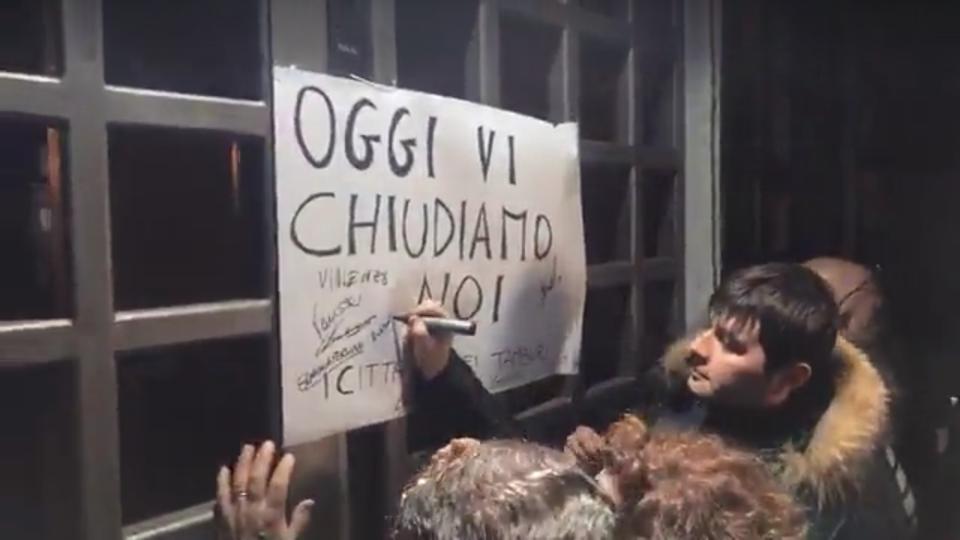 OGGI VI
CHIUDIAMO
NOI
VINCENZO
I CITTA EI TAMBURI